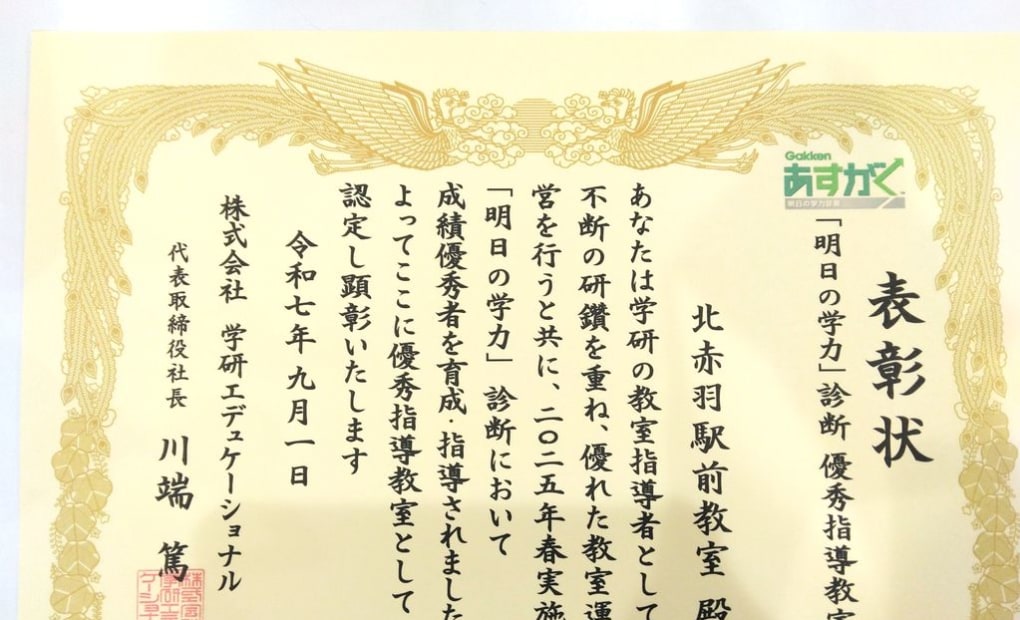 表彰状
Gakken
あすがく
明日の学力診断
「明日の学力」診断 優秀指導教室
北赤羽駅前教室 殿
あなたは学研の教室指導者として
不断の研鑽を重ね、優れた教室運
営を行うと共に、二〇二五年春実施
「明日の学力」診断において
成績優秀者を育成・指導されました
よってここに優秀指導教室として
認定し顕彰いたします
令和七年九月一日
株式会社 学研エデュケーショナル
代表取締役社長 川端 篤